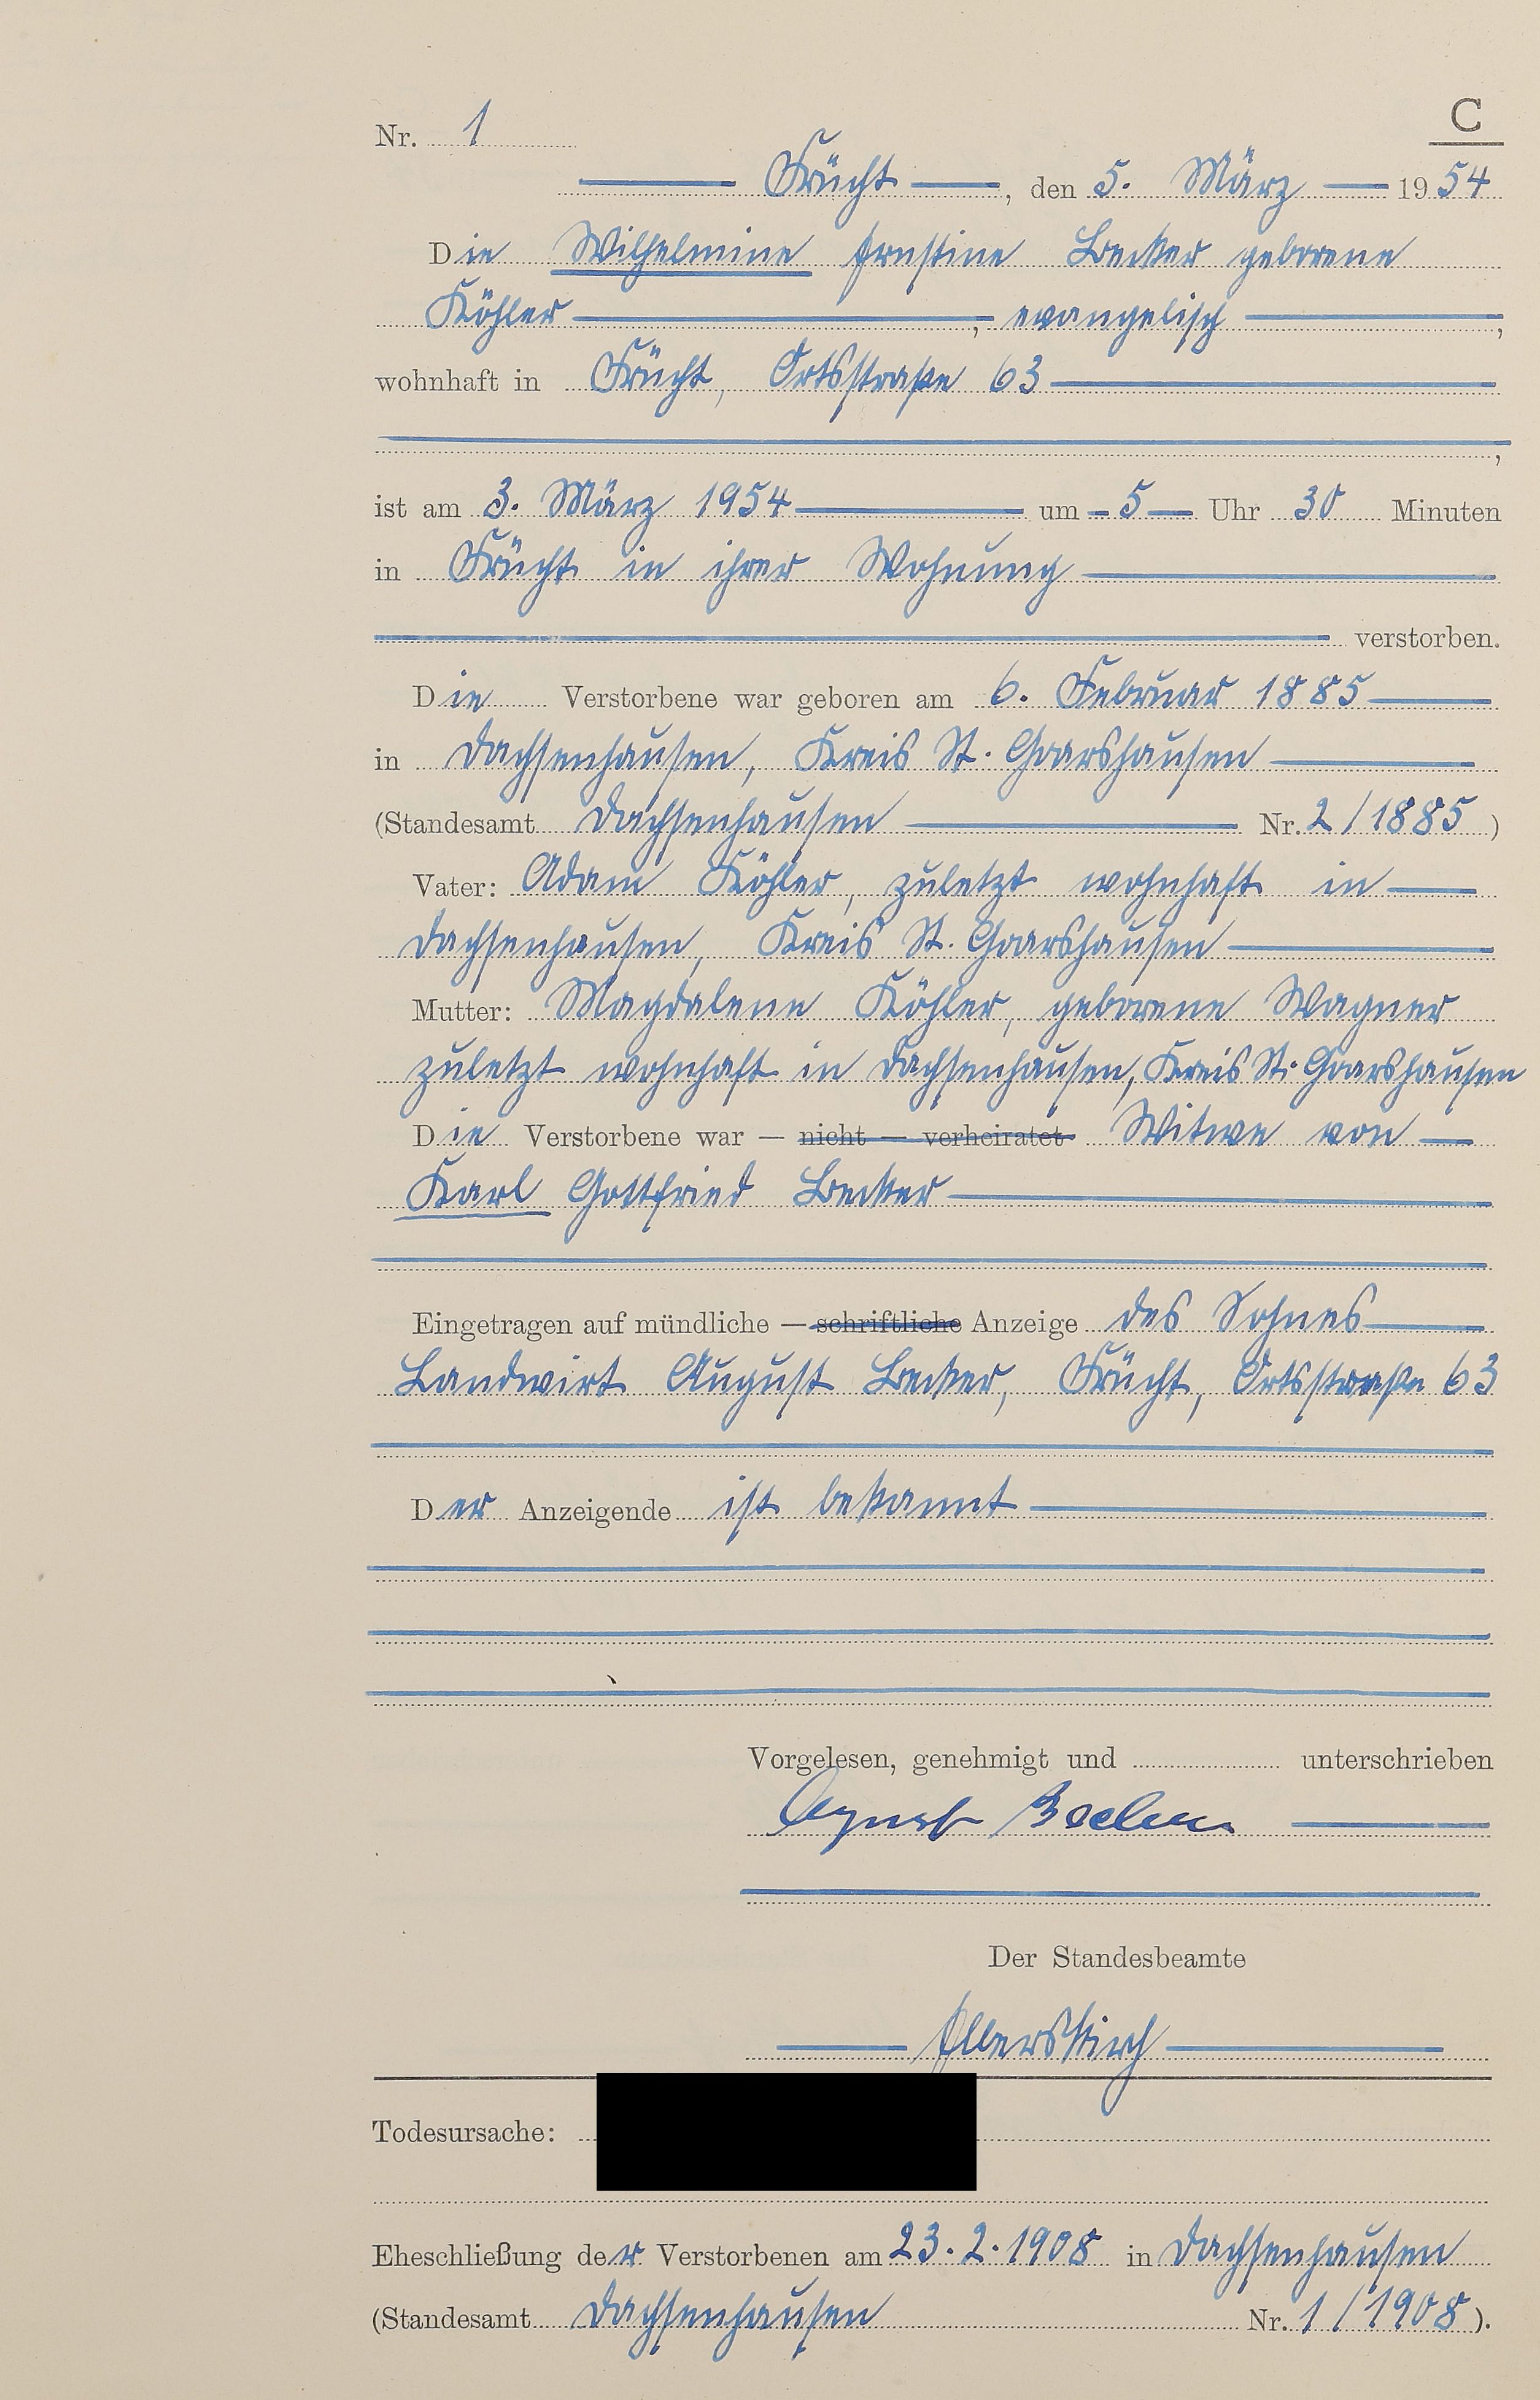 C
Nr. 1
Frücht, den 5. März 1954
Die Wilhelmine Ernstine Becker geborene
Köhler, evangelisch,
wohnhaft in Frücht, Ortsstraße 63
,
ist am 3. März 1954 um 5 Uhr 30 Minuten
in Frücht in ihrer Wohnung
verstorben.
Die Verstorbene war geboren am 6. Februar 1885
in Dachsenhausen, Kreis St. Goarshausen
(Standesamt Dachsenhausen Nr. 2/1885)
Vater: Adam Köhler, zuletzt wohnhaft in
Dachsenhausen, Kreis St. Goarshausen
Mutter: Magdalene Köhler, geborene Wagner
zuletzt wohnhaft in Dachsenhausen, Kreis St. Goarshausen
Die Verstorbene war — nicht — verheiratet Witwe von
Karl Gottfried Becker
Eingetragen auf mündliche — schriftliche Anzeige des Sohnes
Landwirt August Becker, Frücht, Ortsstraße 63
Der Anzeigende ist bekannt
Vorgelesen, genehmigt und unterschrieben
August Becker
Der Standesbeamte
Ellerskirch
Todesursache:
Eheschließung der Verstorbenen am 23.2.1908 in Dachsenhausen
(Standesamt Dachsenhausen Nr. 1/1908).